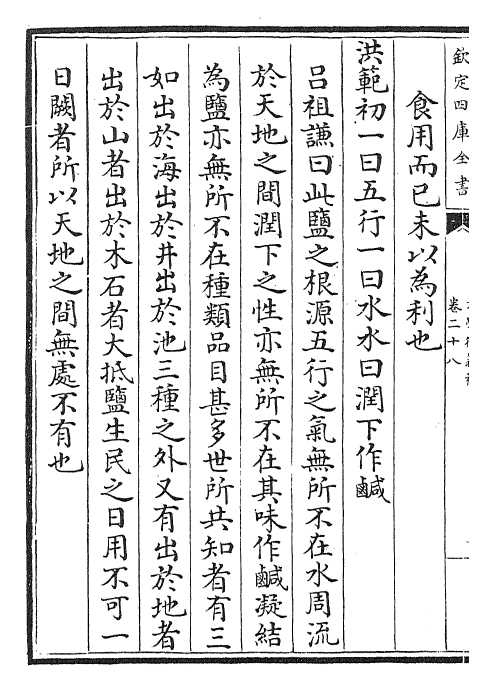 欽定四庫全書
卷二十八
食用而已未以為利也
洪範初一曰五行一曰水水曰潤下作鹹
呂祖謙曰此鹽之根源五行之氣無所不在水周流
於天地之間潤下之性亦無所不在其味作鹹凝結
為鹽亦無所不在種類品目甚多世所共知者有三
如出於海出於井出於池三種之外又有出於地者
出於山者出於木石者大抵鹽生民之日用不可一
日闕者所以天地之間無處不有也